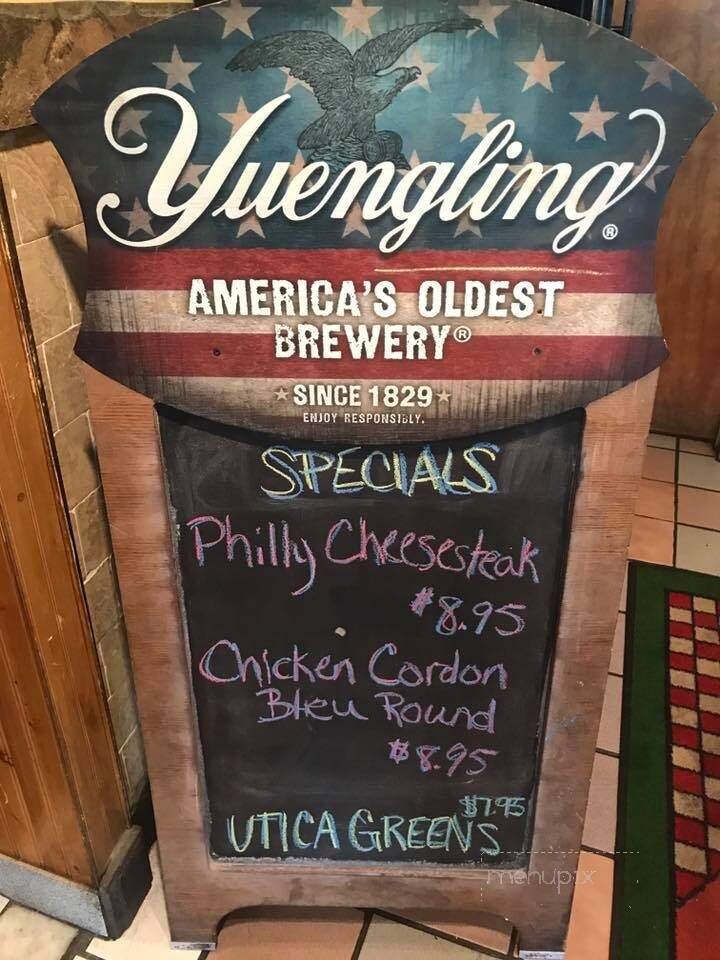 Yuengling®
AMERICA'S OLDEST
BREWERY®
SINCE 1829
ENJOY RESPONSIBLY.
SPECIALS
Philly Cheesesteak
$8.95
Chicken Cordon
Bleu Round
$8.95
$7.95
UTICA GREENS
menupix